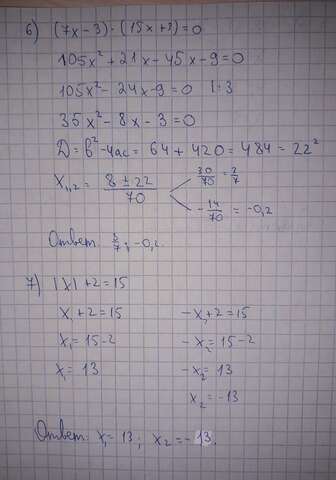 6) (7x-3)·(15x+3)=0
105x²+21x-45x-9=0
105x²-24x-9=0 |:3
35x²-8x-3=0
D=b²-4ac=64+420=484=22²
x₁,₂= (8±22)/70
30/70=2/7
-14/70=-0,2
Ответ: 3/7; -0,2.
7) |x|+2=15
x₁+2=15 -x₂+2=15
x₁=15-2 -x₂=15-2
x₁=13 -x₂=13
x₂=-13
Ответ: x₁=13; x₂=-13.